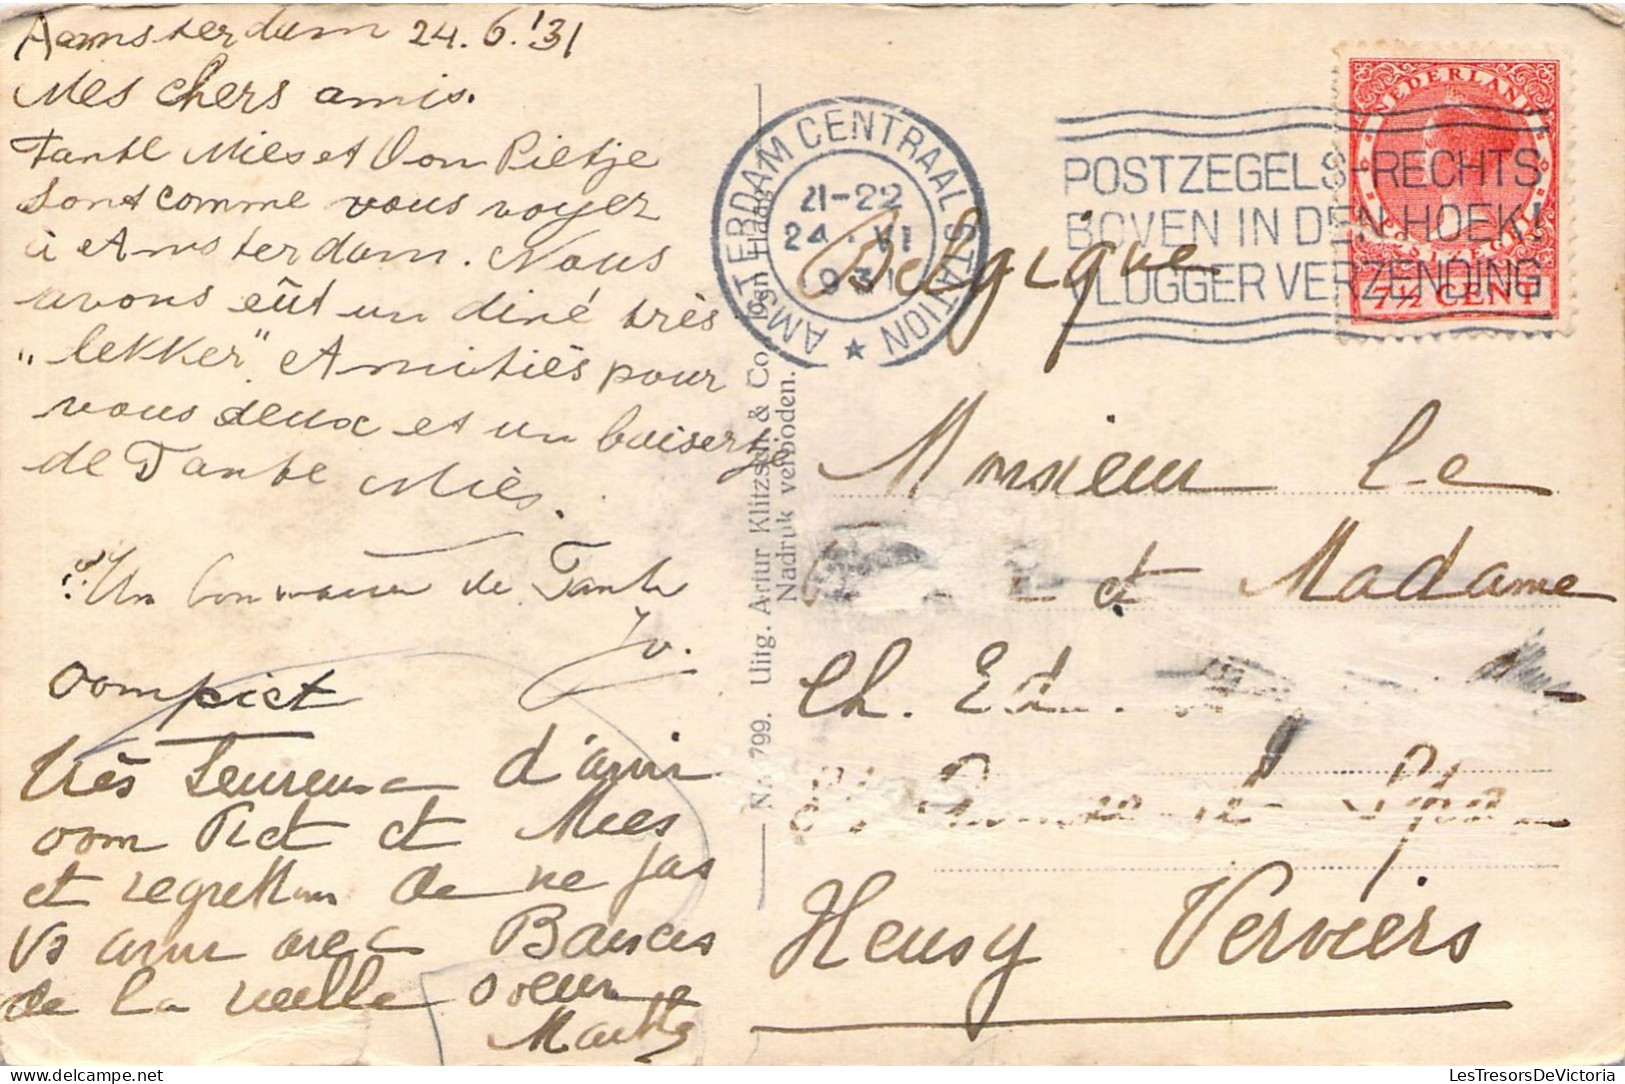 Aamsterdam 24.6.'31
Mes chers amis.
Tante Mies et Oom Pietje
sont comme vous voyez
à Amsterdam. Nous
avons eût un diné très
„lekker" Amitiés pour
vous deux et un baiser
de Tante Miès.
Un bon de Tante
Jo.
oom piet
très heureux d'avoir
oom Piet et Mies
et regrettons de ne pas
vs avoir avec Baisers
de la vieille soeur
Martha
N. 799. Uitg. Artur Klitzsch & Co., Den Haag
Nadruk verboden.
AMSTERDAM CENTRAAL STATION
21-22
24 · VI
1931
POSTZEGELS-RECHTS
BOVEN IN DEN HOEK!
VLUGGER VERZENDING
NEDERLAND
POSTZEGEL
7½ CENT
Belgique
Monsieur le
et Madame
Ch. Ed.
Spa
Heusy Verviers
LesTresorsDeVictoria.com